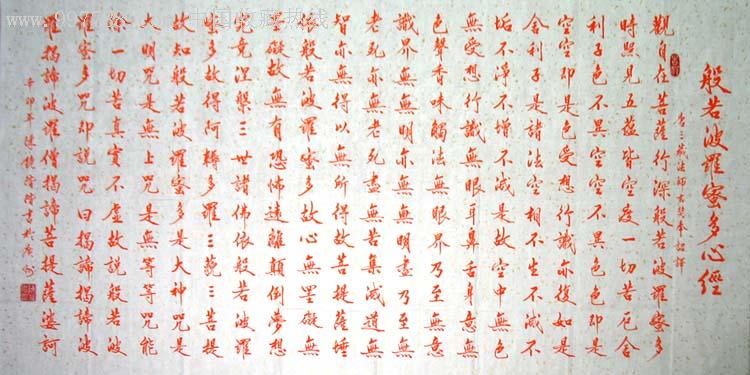 www.997788.com 中国收藏热线
般若波羅蜜多心經
唐三藏法師玄奘奉詔譯
觀自在菩薩行深般若波羅蜜多
時照見五蘊皆空度一切苦厄舍
利子色不異空空不異色色即是
空空即是色受想行識亦復如是
舍利子是諸法空相不生不滅不
垢不淨不增不減是故空中無色
無受想行識無眼耳鼻舌身意無
色聲香味觸法無眼界乃至無意
識界無無明亦無無明盡乃至無
老死亦無老死盡無苦集滅道無
智亦無得以無所得故菩提薩埵
依般若波羅蜜多故心無罣礙無
罣礙故無有恐怖遠離顛倒夢想
究竟涅槃三世諸佛依般若波羅
蜜多故得阿耨多羅三藐三菩提
故知般若波羅蜜多是大神咒是
大明咒是無上咒是無等等咒能
除一切苦真實不虛故說般若波
羅蜜多咒即說咒曰揭諦揭諦波
羅揭諦波羅僧揭諦菩提薩婆訶
辛卯年陳書於廣州